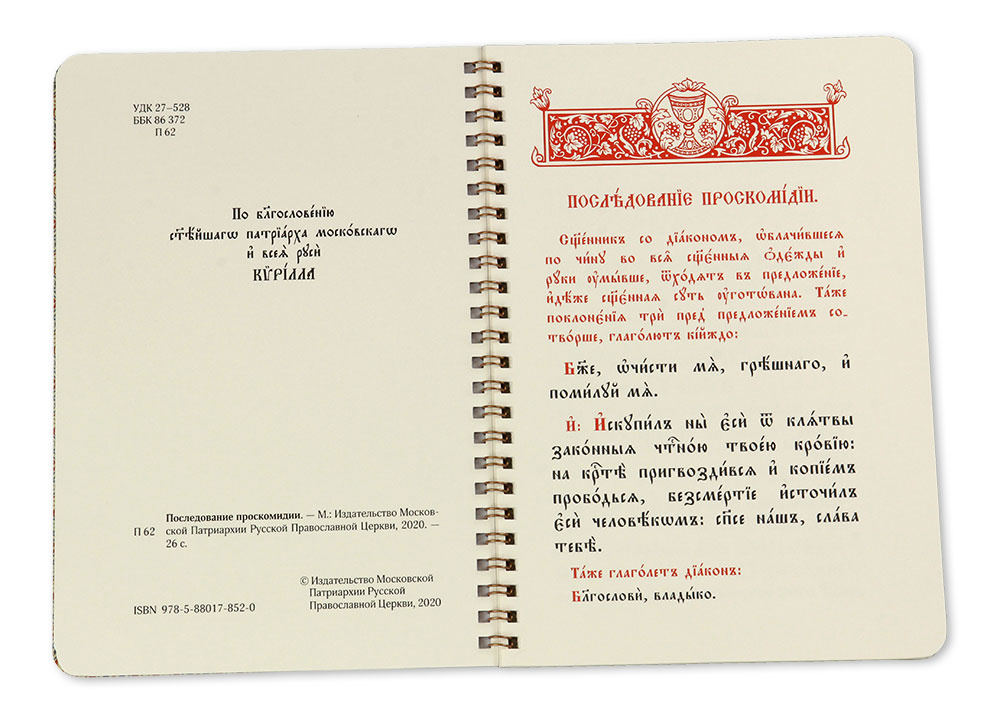 УДК 27–528
ББК 86 372
П 62
По бл҃гослове́нїю
ст҃ѣ́йшагѡ патрїа́рха моско́вскагѡ
и҆ всеѧ̀ рꙋсѝ
КѶРІ́ЛЛА
Последование проскомидии. — М.: Издательство Москов-
П 62 ской Патриархии Русской Православной Церкви, 2020. —
26 с.
© Издательство Московской
Патриархии Русской
Православной Церкви, 2020
ISBN 978-5-88017-852-0
ПОСЛѢ́ДОВАНЇЕ ПРОСКОМІ́ДЇИ.
Сщ҃е́нникъ со дїа́кономъ, ѡ҆блачи́вшесѧ
по чи́нꙋ во всѧ̑ сщ҃є́нныѧ ѻ҆де́жды и҆
рꙋки ᲂу҆мы́вше, ѿхо́дѧтъ въ предложе́нїе,
и҆дѣ́же сщ҃є́ннаѧ сꙋ́ть ᲂу҆гото́вана. Та́же
поклонє́нїѧ трѝ пред̾ предложе́нїемъ со-
тво́рше, глаго́лютъ кі́йждо:
Бж҃е, ѡ҆чи́сти мѧ̀, грѣ́шнаго, и҆
поми́лꙋй мѧ̀.
И҆: И҆скꙋпи́лъ ны̀ є҆сѝ ѿ клѧ́твы
зако́нныѧ чтⷭ҇но́ю твое́ю кро́вїю:
на крⷭ҇тѣ̀ пригвозди́всѧ и҆ копїе́мъ
пробо́дьсѧ, безсме́ртїе и҆сточи́лъ
є҆сѝ человѣ́кѡмъ: сп҃се на́шъ, сла́ва
тебѣ̀.
Та́же глаго́летъ дїа́конъ:
Бл҃гословѝ, влады́ко.